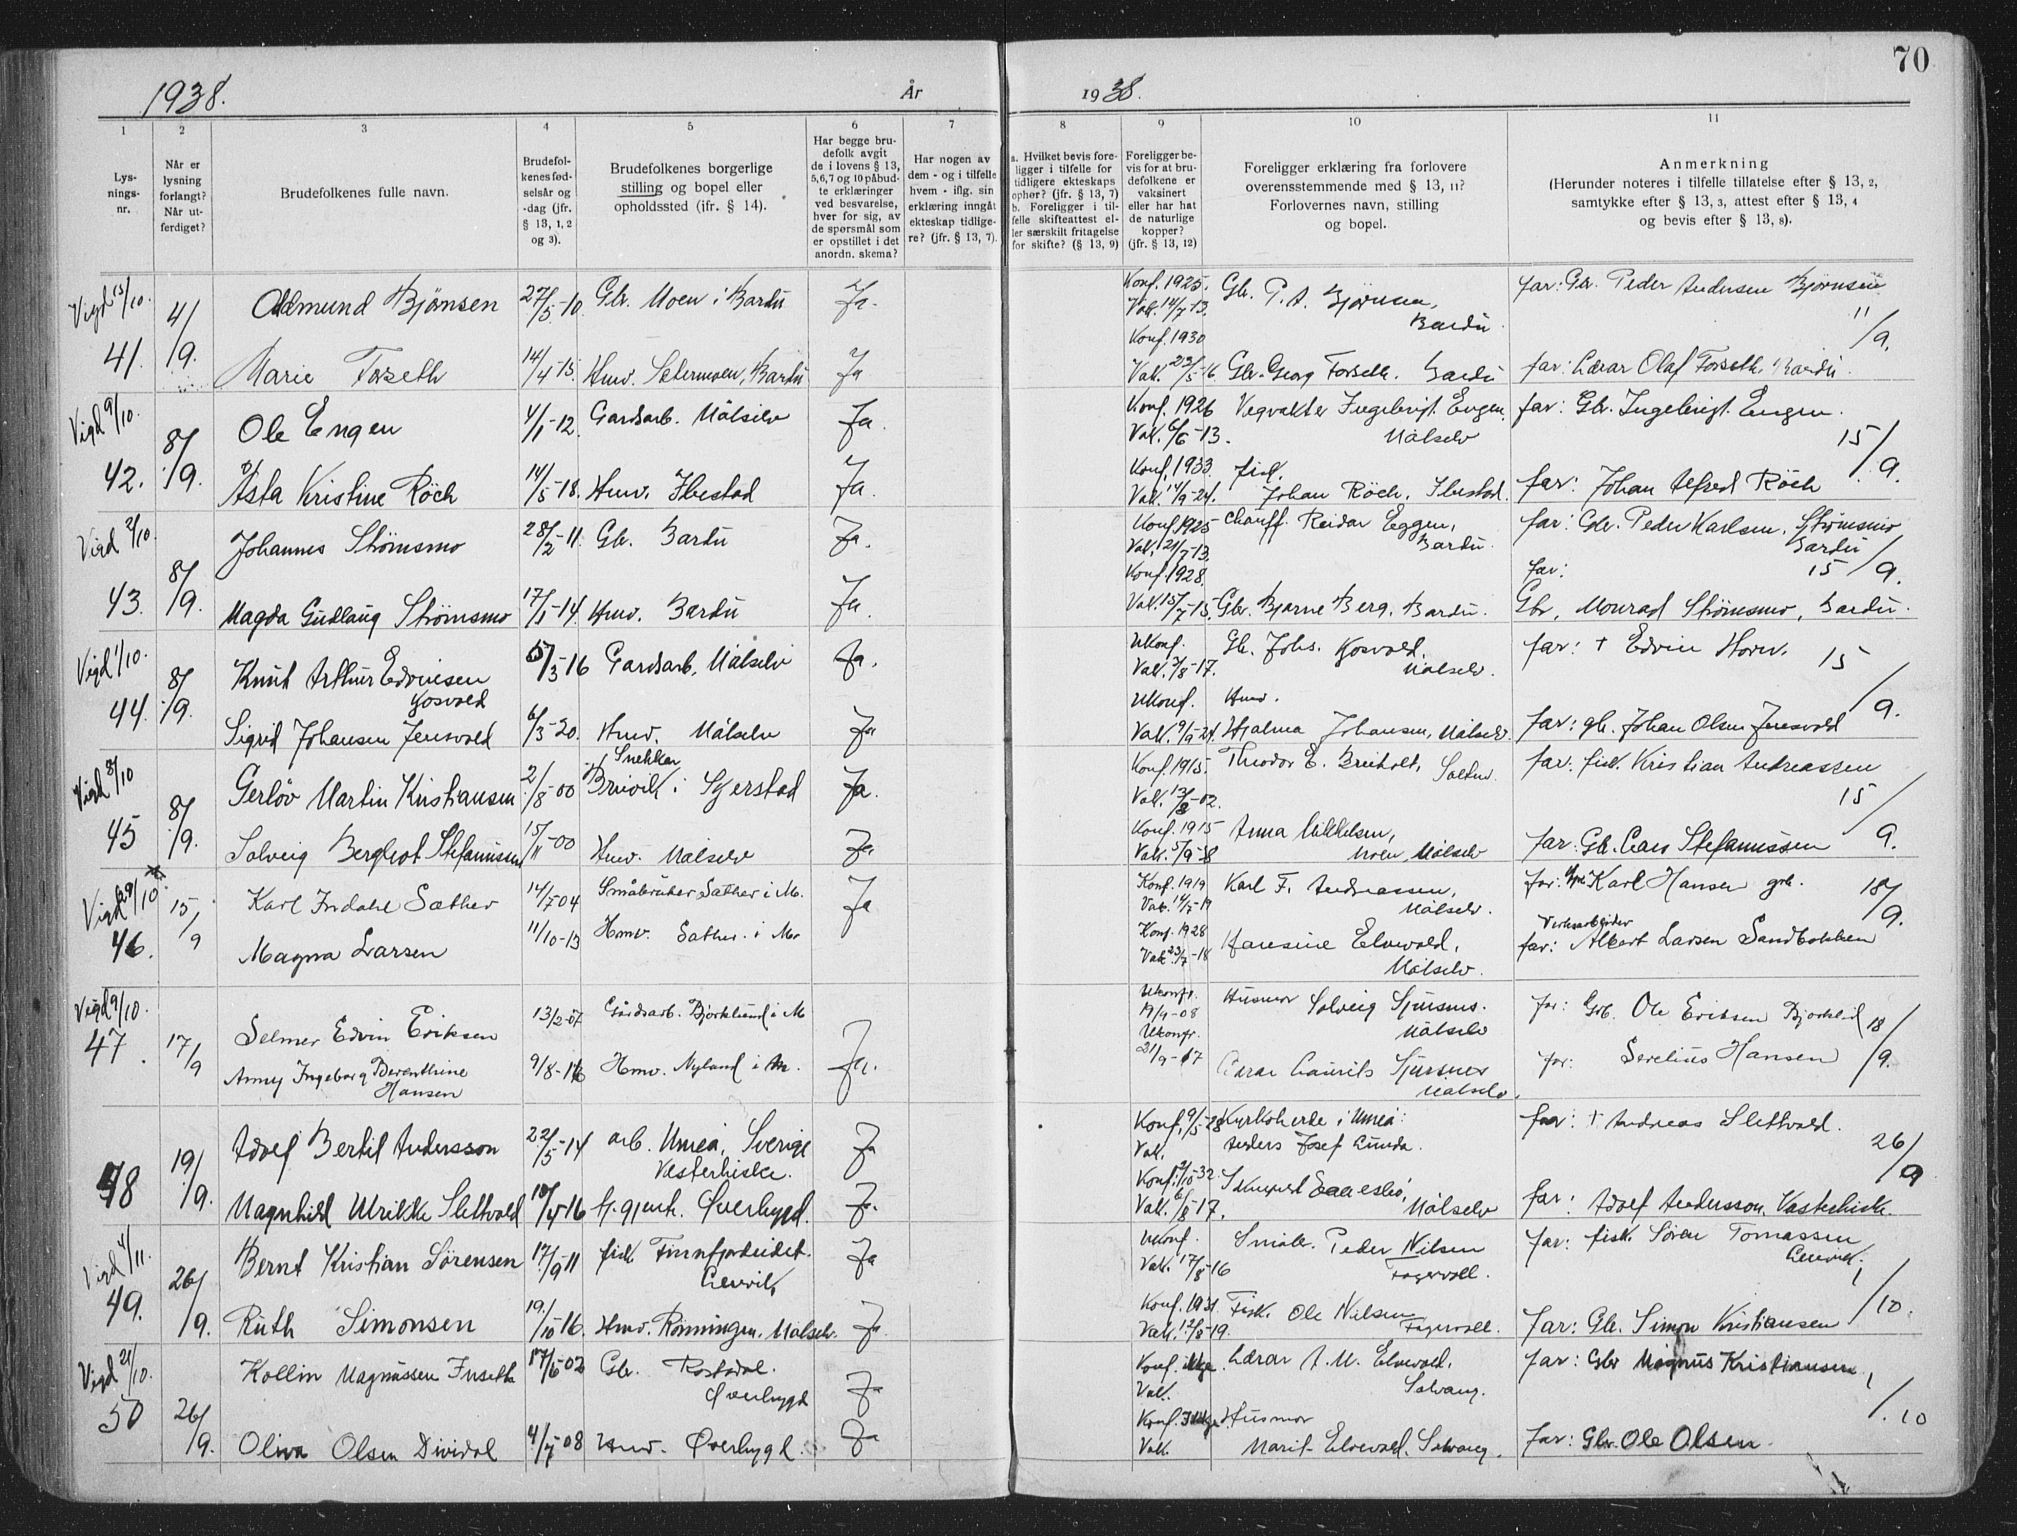 70
1938.
År
1938.
1
2
3
4
5
6
7
8
9
10
11
Lys-
nings-
nr.
Når er
lysning
forlangt?
Når ut-
ferdiget?
Brudefolkenes fulle navn.
Brudefol-
kenes fød-
selsår og
-dag (jfr.
§ 13, 1, 2
og 3).
Brudefolkenes borgerlige
stilling og bopel eller
opholdssted (jfr. § 14).
Har begge bru-
defolk avgit
de i lovens § 13,
5,6,7 og 10 påbud-
te erklæringer
ved besvarelse,
hver for sig, av
de spørsmål som
er opstillet i det
anordn. skema?
Har nogen av
dem - og i tilfelle
hvem - iflg. sin
erklæring inngått
ekteskap tidlige-
re? (jfr. § 13, 7).
a. Hvilket bevis fore-
ligger i tilfelle for
tidligere ekteskaps
ophør? (jfr. § 13, 7)
b. Foreligger i til-
felle skifteattest el-
ler særskilt fritagelse
for skifte? (§ 13, 9)
Foreligger be-
vis for at bru-
defolkene er
vaksinert
eller har hat
de naturlige
kopper?
(jfr. § 13, 12)
Foreligger erklæring fra forlovere
overensstemmende med § 13, 11?
Forlovernes navn, stilling
og bopel.
Anmerkning
(Herunder noteres i tilfelle tillatelse efter § 13, 2,
samtykke efter § 13, 3, attest efter § 13, 4
og bevis efter § 13, 8).
Vigd 15/10.
41.
4/9.
Odmund Bjørnsen 27/5-10 Gbr. Moen i Bardu Ja.
Konf. 1925. Vak. 14/7-13. Gbr. P. A. Bjørnsen, Bardu.
far: Gbr. Peder Andersen Bjørnsen
11/9.
Marie Forseth 14/4-15. Hmv. Setermoen, Bardu Ja
Konf. 1930 Vak. 23/5-16 Gbr. Georg Forseth. Bardu
far: Lærar Olaf Forseth, Bardu.
Vigd 9/10.
42.
8/9.
Ole Engen 4/1-12. Gardsarb. Målselv Ja.
Konf. 1926 Vak. 6/6-13. Vegvakter Ingebrigt Engen, Målselv
far: Gbr. Ingebrigt Engen.
15/9.
Åsta Kristine Röch 14/5-18. Hmv. Ibestad Ja.
Konf. 1933 Vak. 14/9-24. fisk. Johan Röch, Ibestad.
far: Johan Alfred Röch
Vigd 2/10.
43.
8/9.
Johannes Strømsmo 28/2-11. Gbr. Bardu Ja.
Konf. 1925 Vak. 21/7-13. Chauff. Reidar Eggen, Bardu.
far: Gbr. Peder Karlsen Strømsmo Bardu
15/9.
Magda Gudlaug Strømsmo 17/1-14. Hmv. Bardu Ja.
Konf. 1928. Vak. 15/7-15. Gbr. Bjarne Berg, Bardu.
far: Gbr. Monrad Strømsmo, Bardu.
Vigd 1/10.
44.
8/9.
Knut Arthur Edvinsen Gosvold 5/3-16 Gardsarb. Målselv Ja.
Ukonf. Vak. 3/8-17. Gb. Johs. Gosvold. Målselv.
far: + Edvin Horn.
15/9.
Sigrid Johansen Jensvold 6/3-20. Hmv. Målselv Ja
Ukonf. Vak. 9/9-24. Hmv. Hjalma Johansen, Målselv.
far: gb. Johan Olsen Jensvold
Vigd 8/10
45
8/9.
Gerløv Martin Kristiansen 2/8-00 Snekker Breivik i Skjerstad Ja.
Konf. 1915. Vak. 13/8-02. Theodor E. Breiholt,
far: fisk. Kristian Andreassen
15/9.
Solveig Bergliot Stefanussen 15/11-00 Hmv. Målselv Ja.
Konf. 1915 Anna Mikkelsen, Moen Målselv
far: Gb. Lars Stefanussen
Vigd 29/10
46.
15/9
Karl Indahl Sæther 14/7-04 Småbruker Sæther i M. Ja
Konf. 1919 Vak. 14/7-19 Karl F. Andreassen, Målselv.
far: Karl Hansen grb.
18/9.
Magna Larsen 11/10-13 Hmv. Sæther i M.
Konf. 1928 Vak. 23/7-18 Haresine Elvevold, Målselv.
Verksarbeider
far: Albert Larsen Sandbakken
Vigd 9/10.
47.
17/9
Selmer Edvin Eriksen 13/2-07 Gårdsarb. Bjørklund i M
Ukonfr. 19/9-08 Husmor Solveig Sjursns. Målselv
far: Grb. Ole Eriksen Bjørklid
18/9.
Anny Ingeborg Berenthine Hansen 9/8-16 Hmv. Nyland i M. Ja.
Ukonfr. 21/9-17 Lærar Laurits Sjursnes Målselv.
far: Serelius Hansen
48
19/9.
Adolf Bertil Andersson 22/5-14 arb. Umeå, Sverige Vesterhiske. Ja
Konf. 9/5-28 Vak. Kyrkoherde i Umeå: Anders Josef Lunda.
far: + Andreas Slettvold.
26/9
Magnhild Ulrikke Slettvold 10/4-16 fj.gjenh. Øverbygd. Ja.
Vak. 6/8-17. Målselv
far: Adolf Andersson, Vasterhiske.
Vigd 4/11.
49.
26/9.
Bernt Kristian Sørensen 17/9-11 fisk. Finnfjordeidet. Lenvik Ja
Ukonf. Vak. 17/8-16 Småbr. Peder Nilsen Fagervoll.
far: fisk. Søren Tomassen Lenvik.
1/10.
Ruth Simonsen 19./10-16. Hmv. Rønningen, Målselv. Ja.
Konf. 1931 Vak. 12/8-19. Fisk. Ole Nilsen Fagervoll.
far: Gb. Simon Kristiansen
Vigd 21/10.
50
26/9.
Kollin Magnussen Fuseth 17/6-02 Gbr. Rostadal. Øverbygd Ja
Konf. ikkje. Vak. Lærar A. M. Elvevold, Solvang.
far: Gbr Magnus Kristiansen
1/10
Oliva Olsen Dividal 4/7-08 Hmv. Øverbygd. Ja
Konf. Ikkje. Vak. Husmor Marit Elvevold, Solvang.
far: Gbr. Ole Olsen.